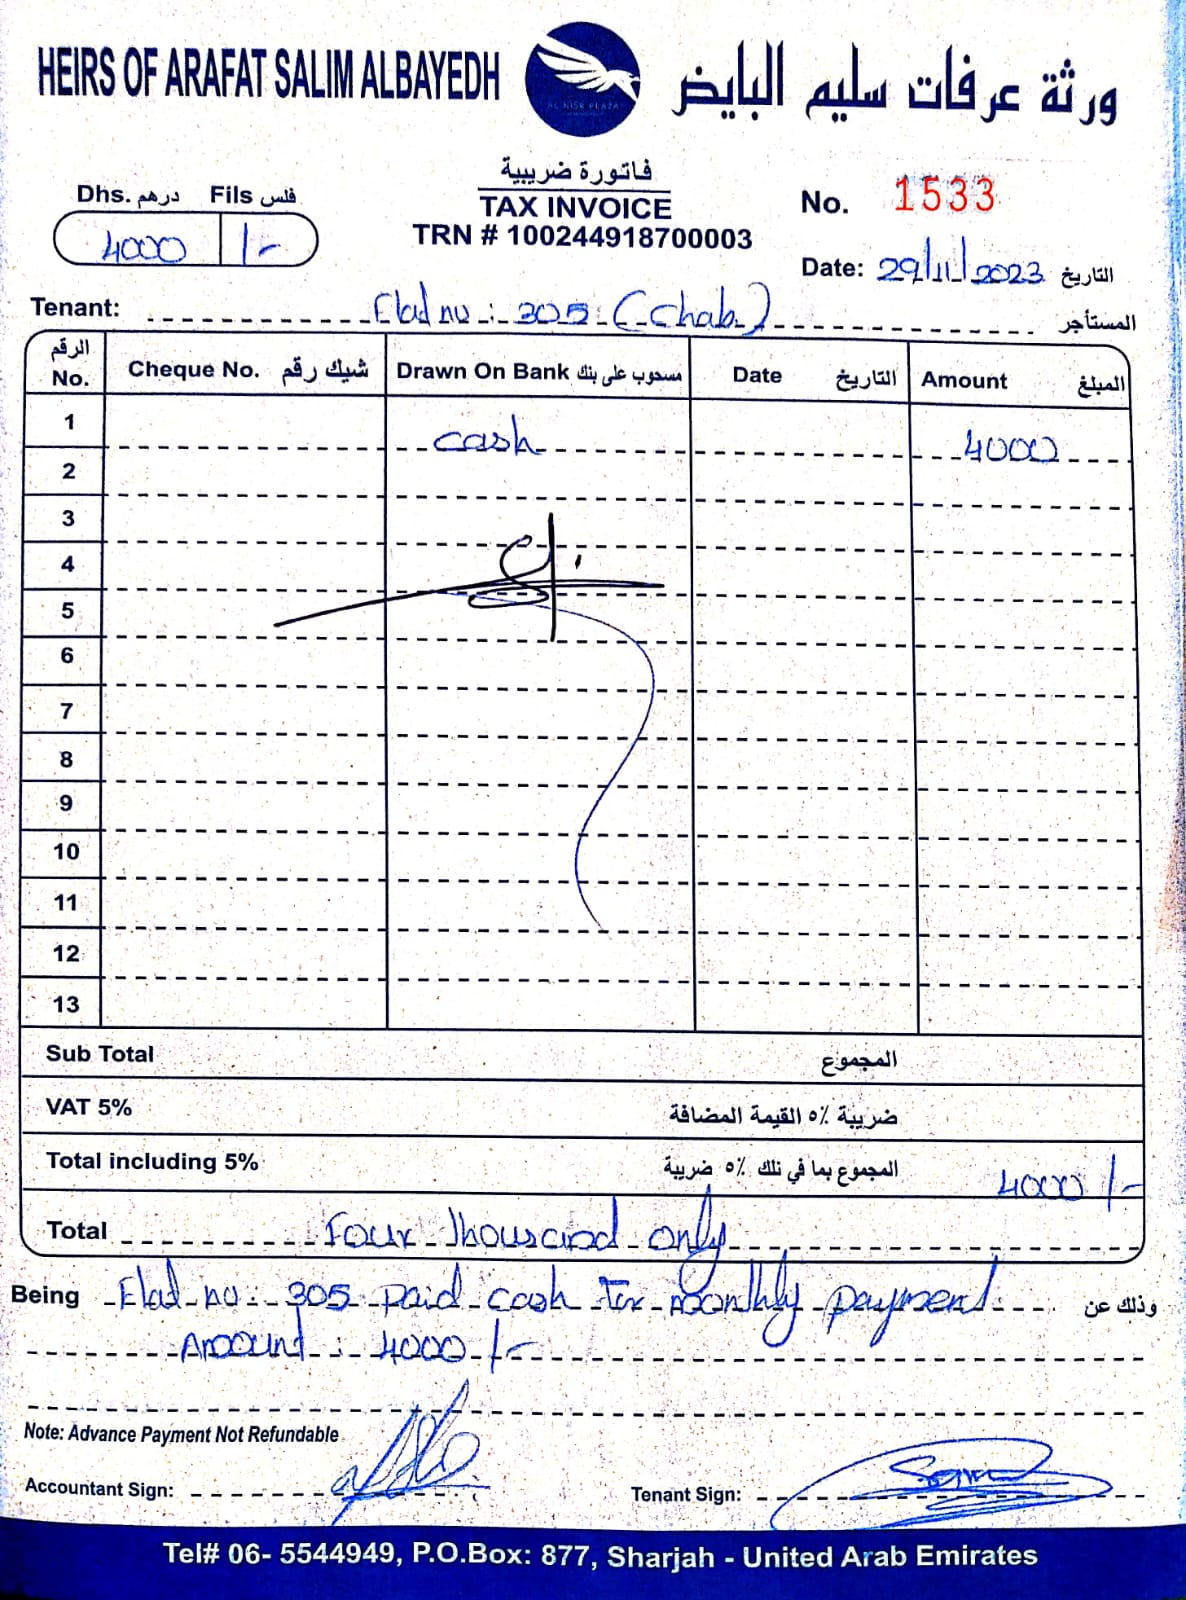 HEIRS OF ARAFAT SALIM ALBAYEDH
AL NISR PLAZA
ورثة عرفات سليم البايض
فاتورة ضريبية
TAX INVOICE
TRN # 100244918700003
Dhs. درهم Fils فلس
4000 /-
No. 1533
Date: 29/11/2023 التاريخ
Tenant: Flat no : 305 (Chab) المستأجر
الرقم No. Cheque No. شيك رقم Drawn On Bank مسحوب على بنك Date التاريخ Amount المبلغ
1 cash 4000
2
3
4
5
6
7
8
9
10
11
12
13
Sub Total المجموع
VAT 5% ضريبة ٥٪ القيمة المضافة
Total including 5% المجموع بما في ذلك ٥٪ ضريبة 4000 /-
Total Four Thousand only
Being Flat no : 305 paid cash for monthly payment وذلك عن
Amount : 4000 /-
Note: Advance Payment Not Refundable
Accountant Sign:
Tenant Sign:
Tel# 06- 5544949, P.O.Box: 877, Sharjah - United Arab Emirates